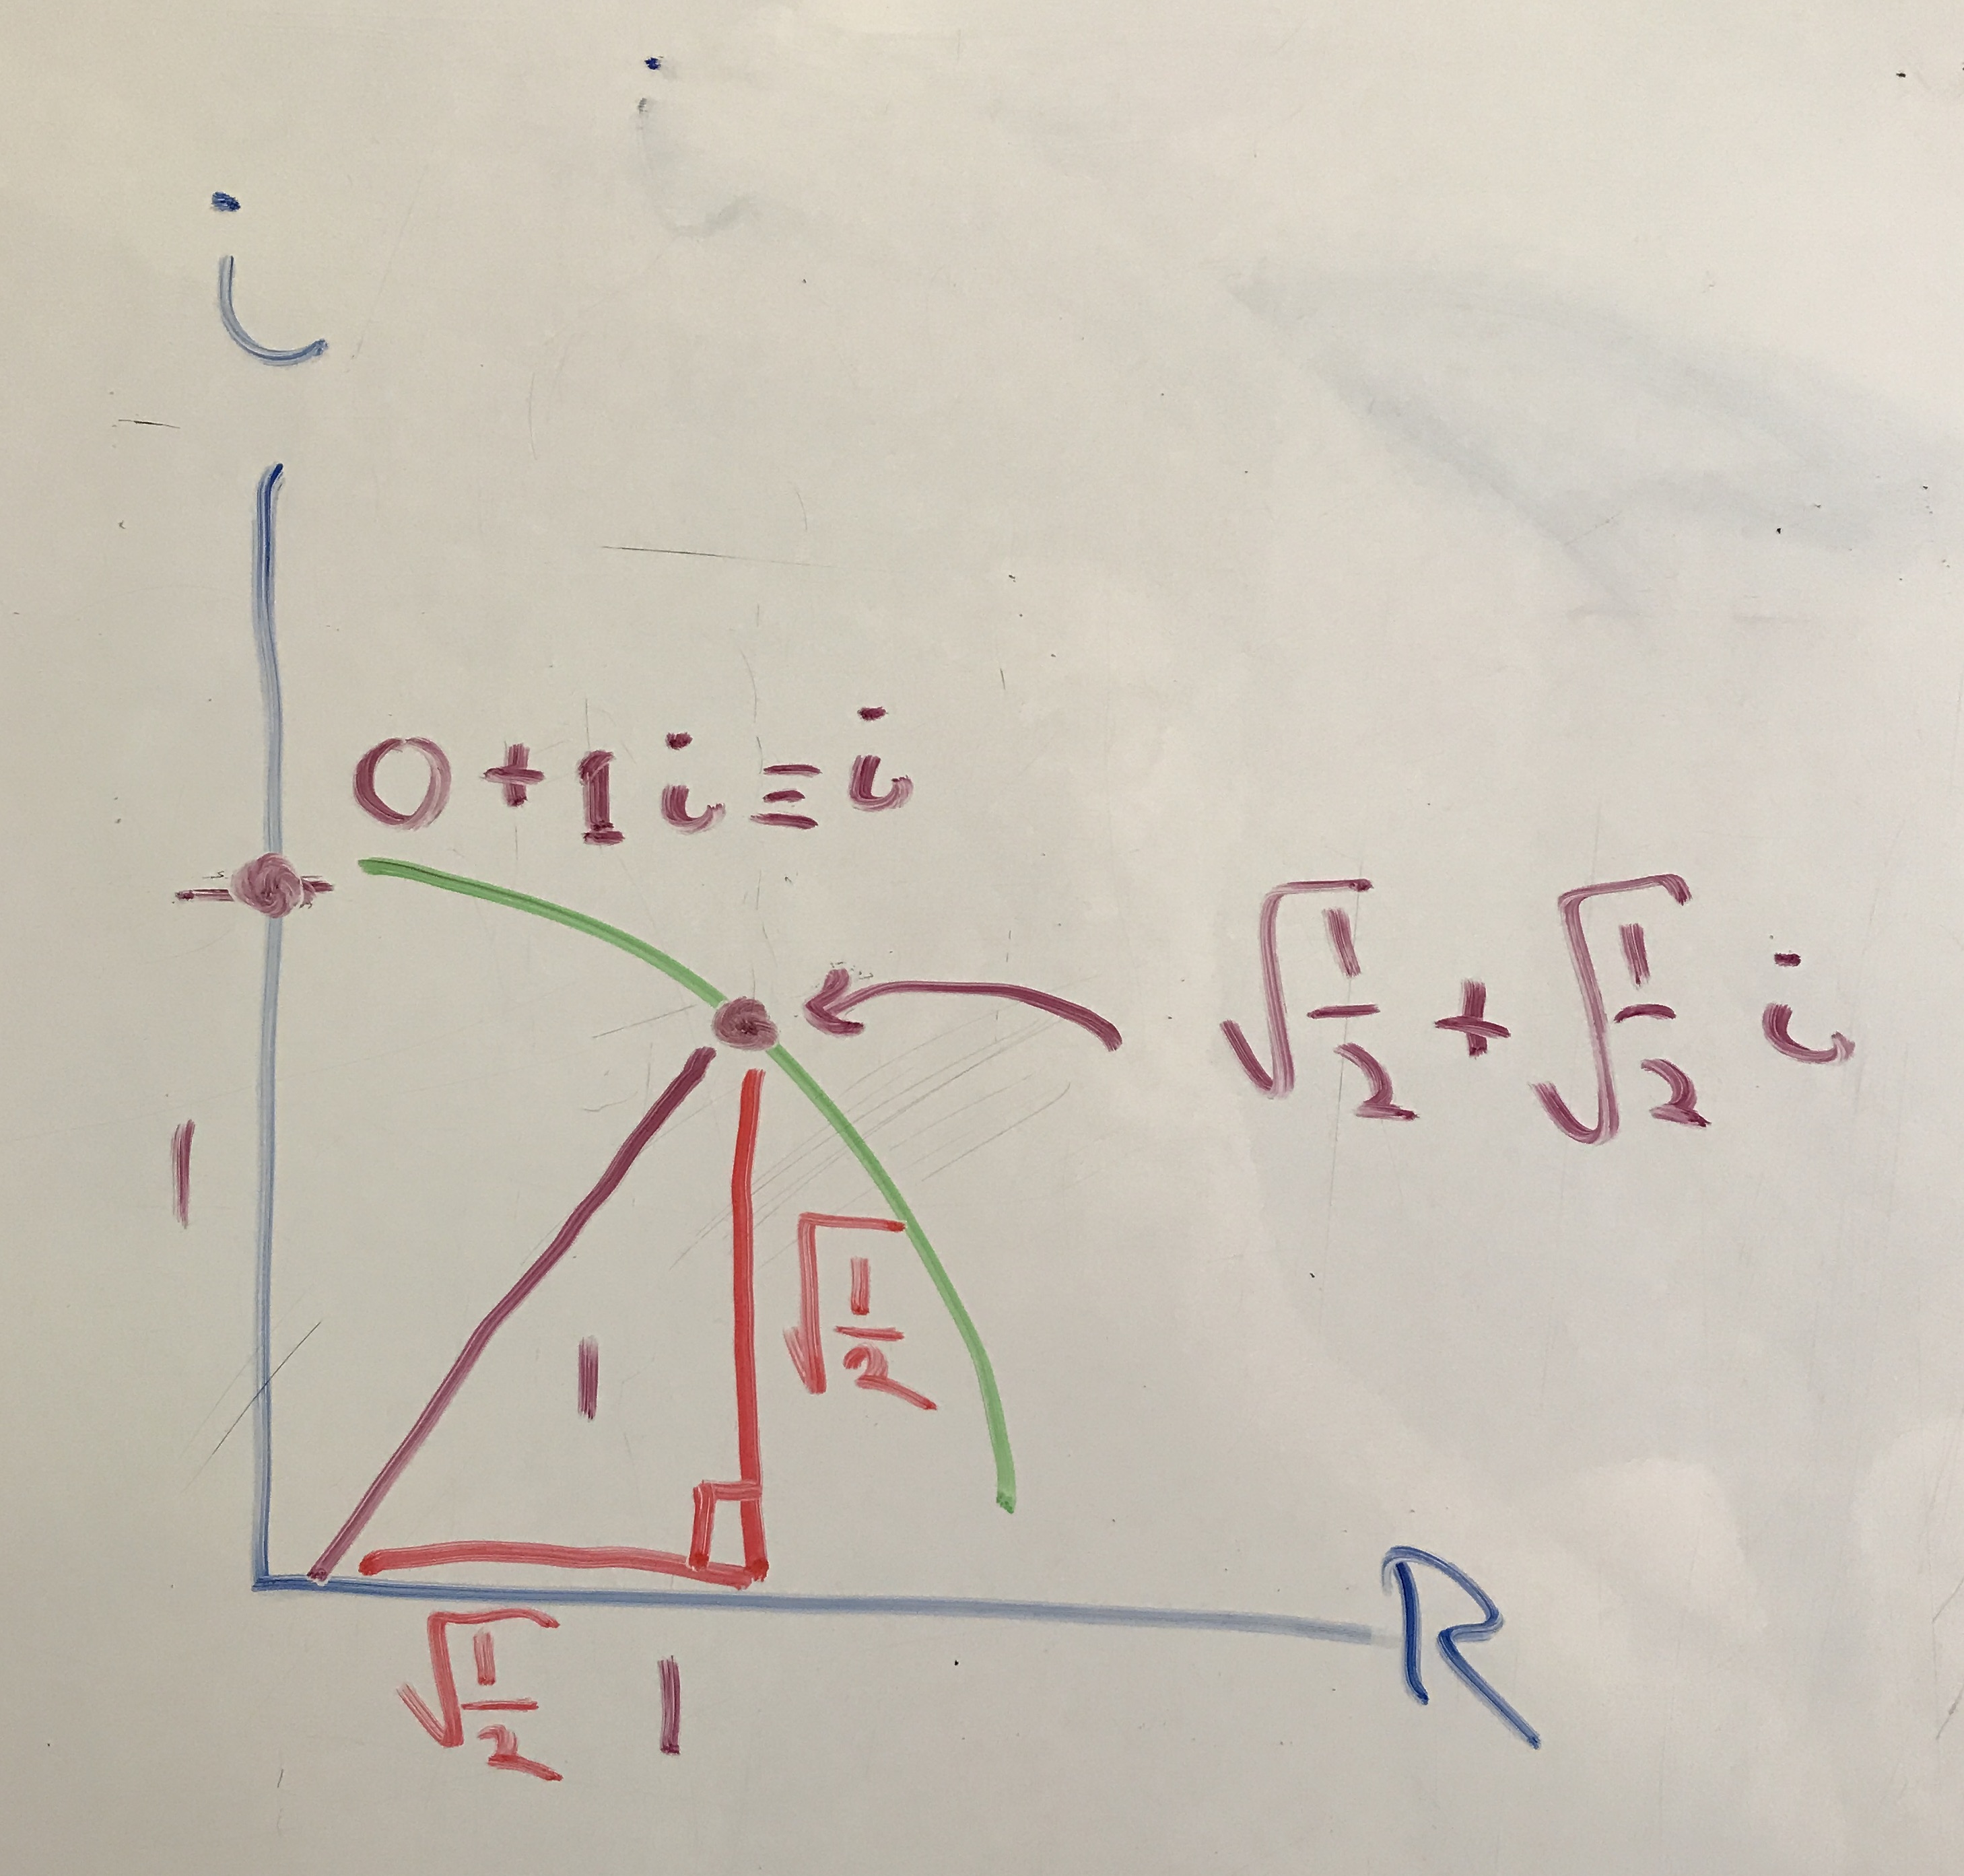 i
0 + 1i ≡ i
√1/2 + √1/2 i
1
√1/2
1
R
√1/2
1